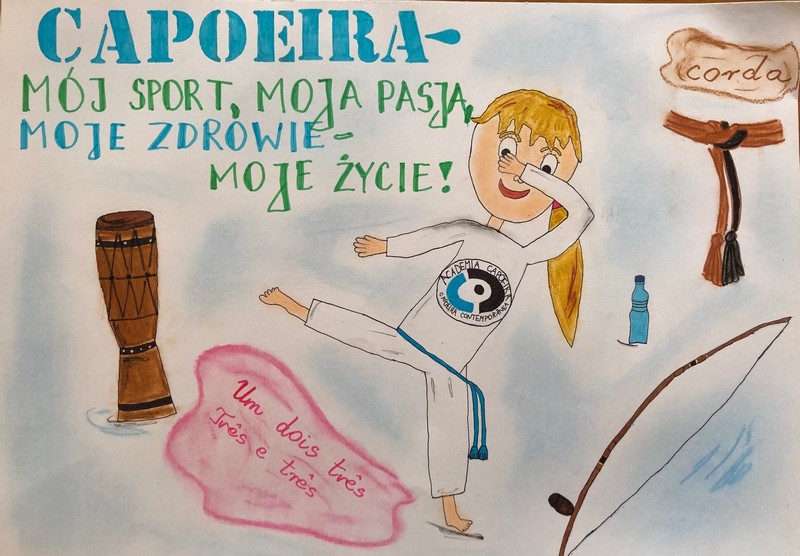 CAPOEIRA-
MÓJ SPORT, MOJA PASJA,
MOJE ZDROWIE -
MOJE ŻYCIE!
corda
ACADEMIA CAPOEIRA
Um dois três
Três e três